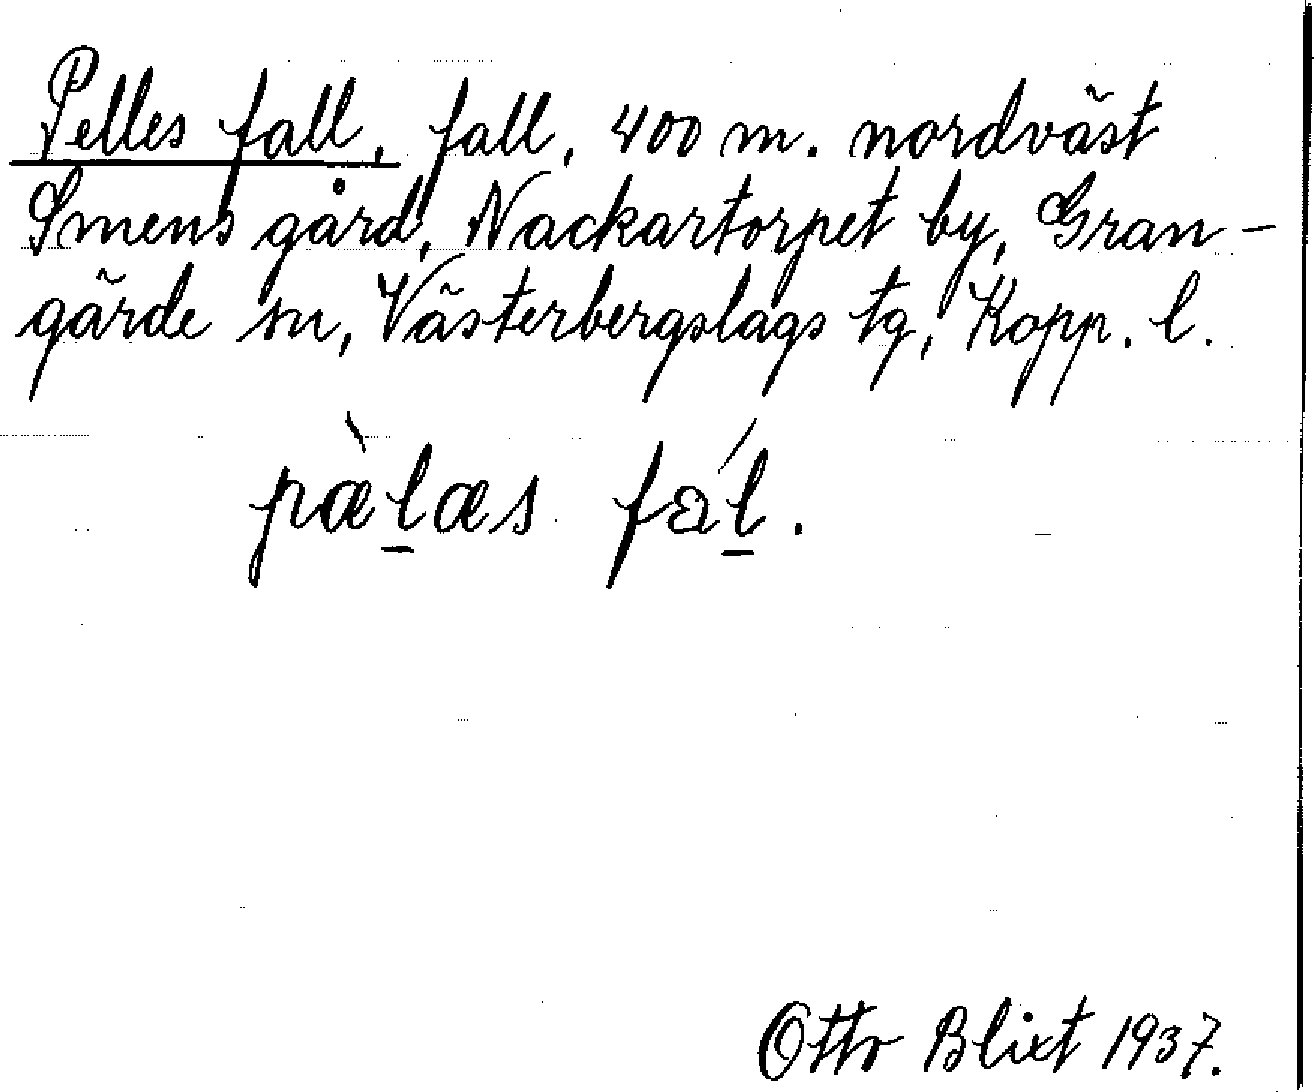 Pelles fall, fall, 400 m. nordväst
Smens gård, Nackartorpet by, Gran-
gärde sn, Västerbergslags tg, Kopp. l.
pæ̀l̲æs faĺ̲.
Otto Blixt 1937.